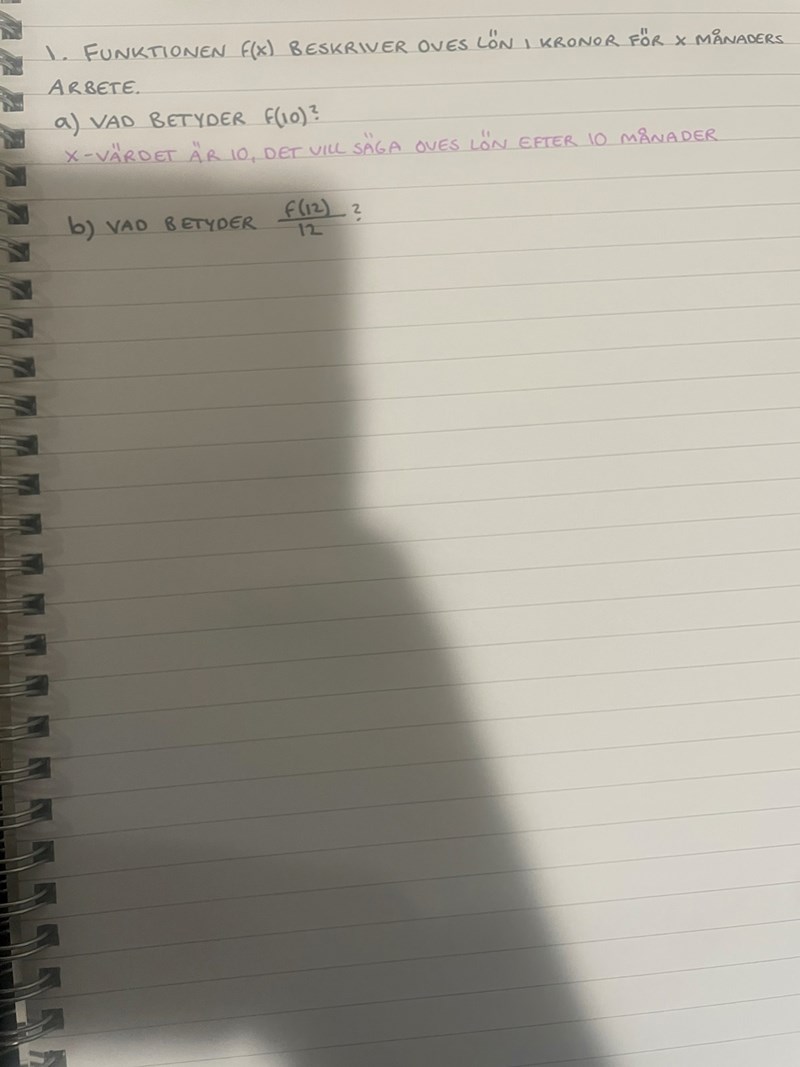 1. FUNKTIONEN f(x) BESKRIVER OVES LÖN I KRONOR FÖR X MÅNADERS
ARBETE.
a) VAD BETYDER f(10)?
X-VÄRDET ÄR 10, DET VILL SÄGA OVES LÖN EFTER 10 MÅNADER
b) VAD BETYDER f(12)/12?